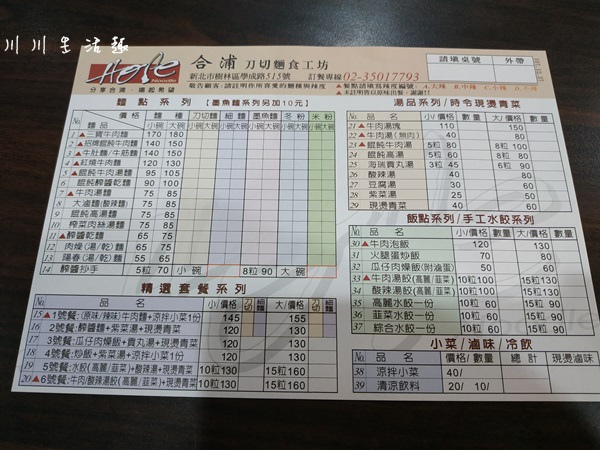 川川生活趣
Hope Noodle
分享合浦‧擁抱希望
合浦 刀切麵食工坊
新北市樹林區學成路515號 訂餐專線02-35017793
請填桌號 外帶
麵點系列 【墨魚麵系列另加10元】
麵品 價格 麵種 刀切麵 細麵 墨魚麵 冬粉 米粉
小碗 大碗 小碗 大碗 小碗 大碗 小碗 大碗 小碗 大碗 小碗 大碗
1 ▲三寶牛肉麵 170 180
2 ▲招牌餛飩牛肉麵 140 150
3 ▲牛肚麵/牛筋麵 140 150
4 ▲紅燒牛肉麵 120 130
5 ▲餛飩牛肉湯麵 95 105
6 餛飩醡醬乾麵 90 100
7 ▲牛肉湯麵 75 85
8 大滷麵(酸辣麵) 75 85
9 餛飩高湯麵 75 85
10 榨菜肉絲湯麵 75 85
11 ▲醡醬乾麵 65 75
12 肉燥(湯/乾)麵 55 65
13 陽春(湯/乾)麵 55 65
14 醡醬抄手 5粒 70 小碗 8粒 90 大碗
精選套餐系列
No. 品名 小/價格 刀切 細麵 大/價格 刀切 細麵
15 ▲1號餐:(原味/辣味)牛肉麵+涼拌小菜1份 145 155
16 2號餐:醡醬麵+紫菜湯+現燙青菜 120 130
17 3號餐:瓜仔肉燥飯+貢丸湯+現燙青菜 120 130
18 4號餐:炒飯+紫菜湯+涼拌小菜1份 120 130
19 5號餐:水餃(高麗/韮菜)+酸辣湯+現燙青菜 10粒130 15粒160
20 ▲6號餐:牛肉/酸辣湯餃(高麗/韮菜)+現燙青菜 10粒130 15粒160
湯品系列/時令現燙青菜
品名 小/價格 數量 大/價格 數量
21 ▲牛肉湯塊 110 150
22 ▲牛肉湯(無肉) 40 80
23 ▲餛飩牛肉湯 5粒 80 8粒 100
24 餛飩高湯 5粒 60 8粒 90
25 海瑞貢丸湯 3粒 45 5粒 60
26 酸辣湯 40 50
27 豆腐湯 30 50
28 紫菜湯 30 50
29 現燙青菜 40 60
飯點系列/手工水餃系列
品名 小/價格 數量 大/價格 數量
30 ▲牛肉泡飯 120 130
31 火腿蛋炒飯 70 80
32 瓜仔肉燥飯(附滷蛋) 60 70
33 ▲牛肉湯餃(高麗/韮菜) 10粒 90 15粒 120
34 酸辣湯餃(高麗/韮菜) 10粒 90 15粒 120
35 高麗水餃一份 10粒 60 15粒 90
36 韮菜水餃一份 10粒 60 15粒 90
37 綜合水餃一份 10粒 60 15粒 90
小菜/滷味/冷飲
No. 品名 價格/數量 總計 現燙滷味
38 涼拌小菜 40/
39 清涼飲料 20/ 10/